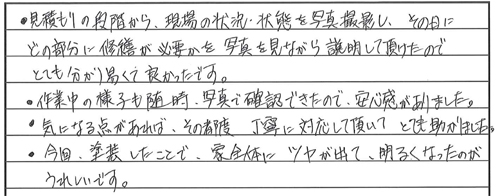 ・見積もりの段階から、現場の状況・状態を写真撮影し、その日に
どの部分に修繕が必要かを写真を見ながら説明して頂けたので
とても分かり易くて良かったです。
・作業中の様子も随時、写真で確認できたので、安心感がありました。
・気になる点があれば、その都度 丁寧に対応して頂いて とても助かりました。
・今回、塗装したことで、家全体に ツヤが出て、明るくなったのが
うれしいです。